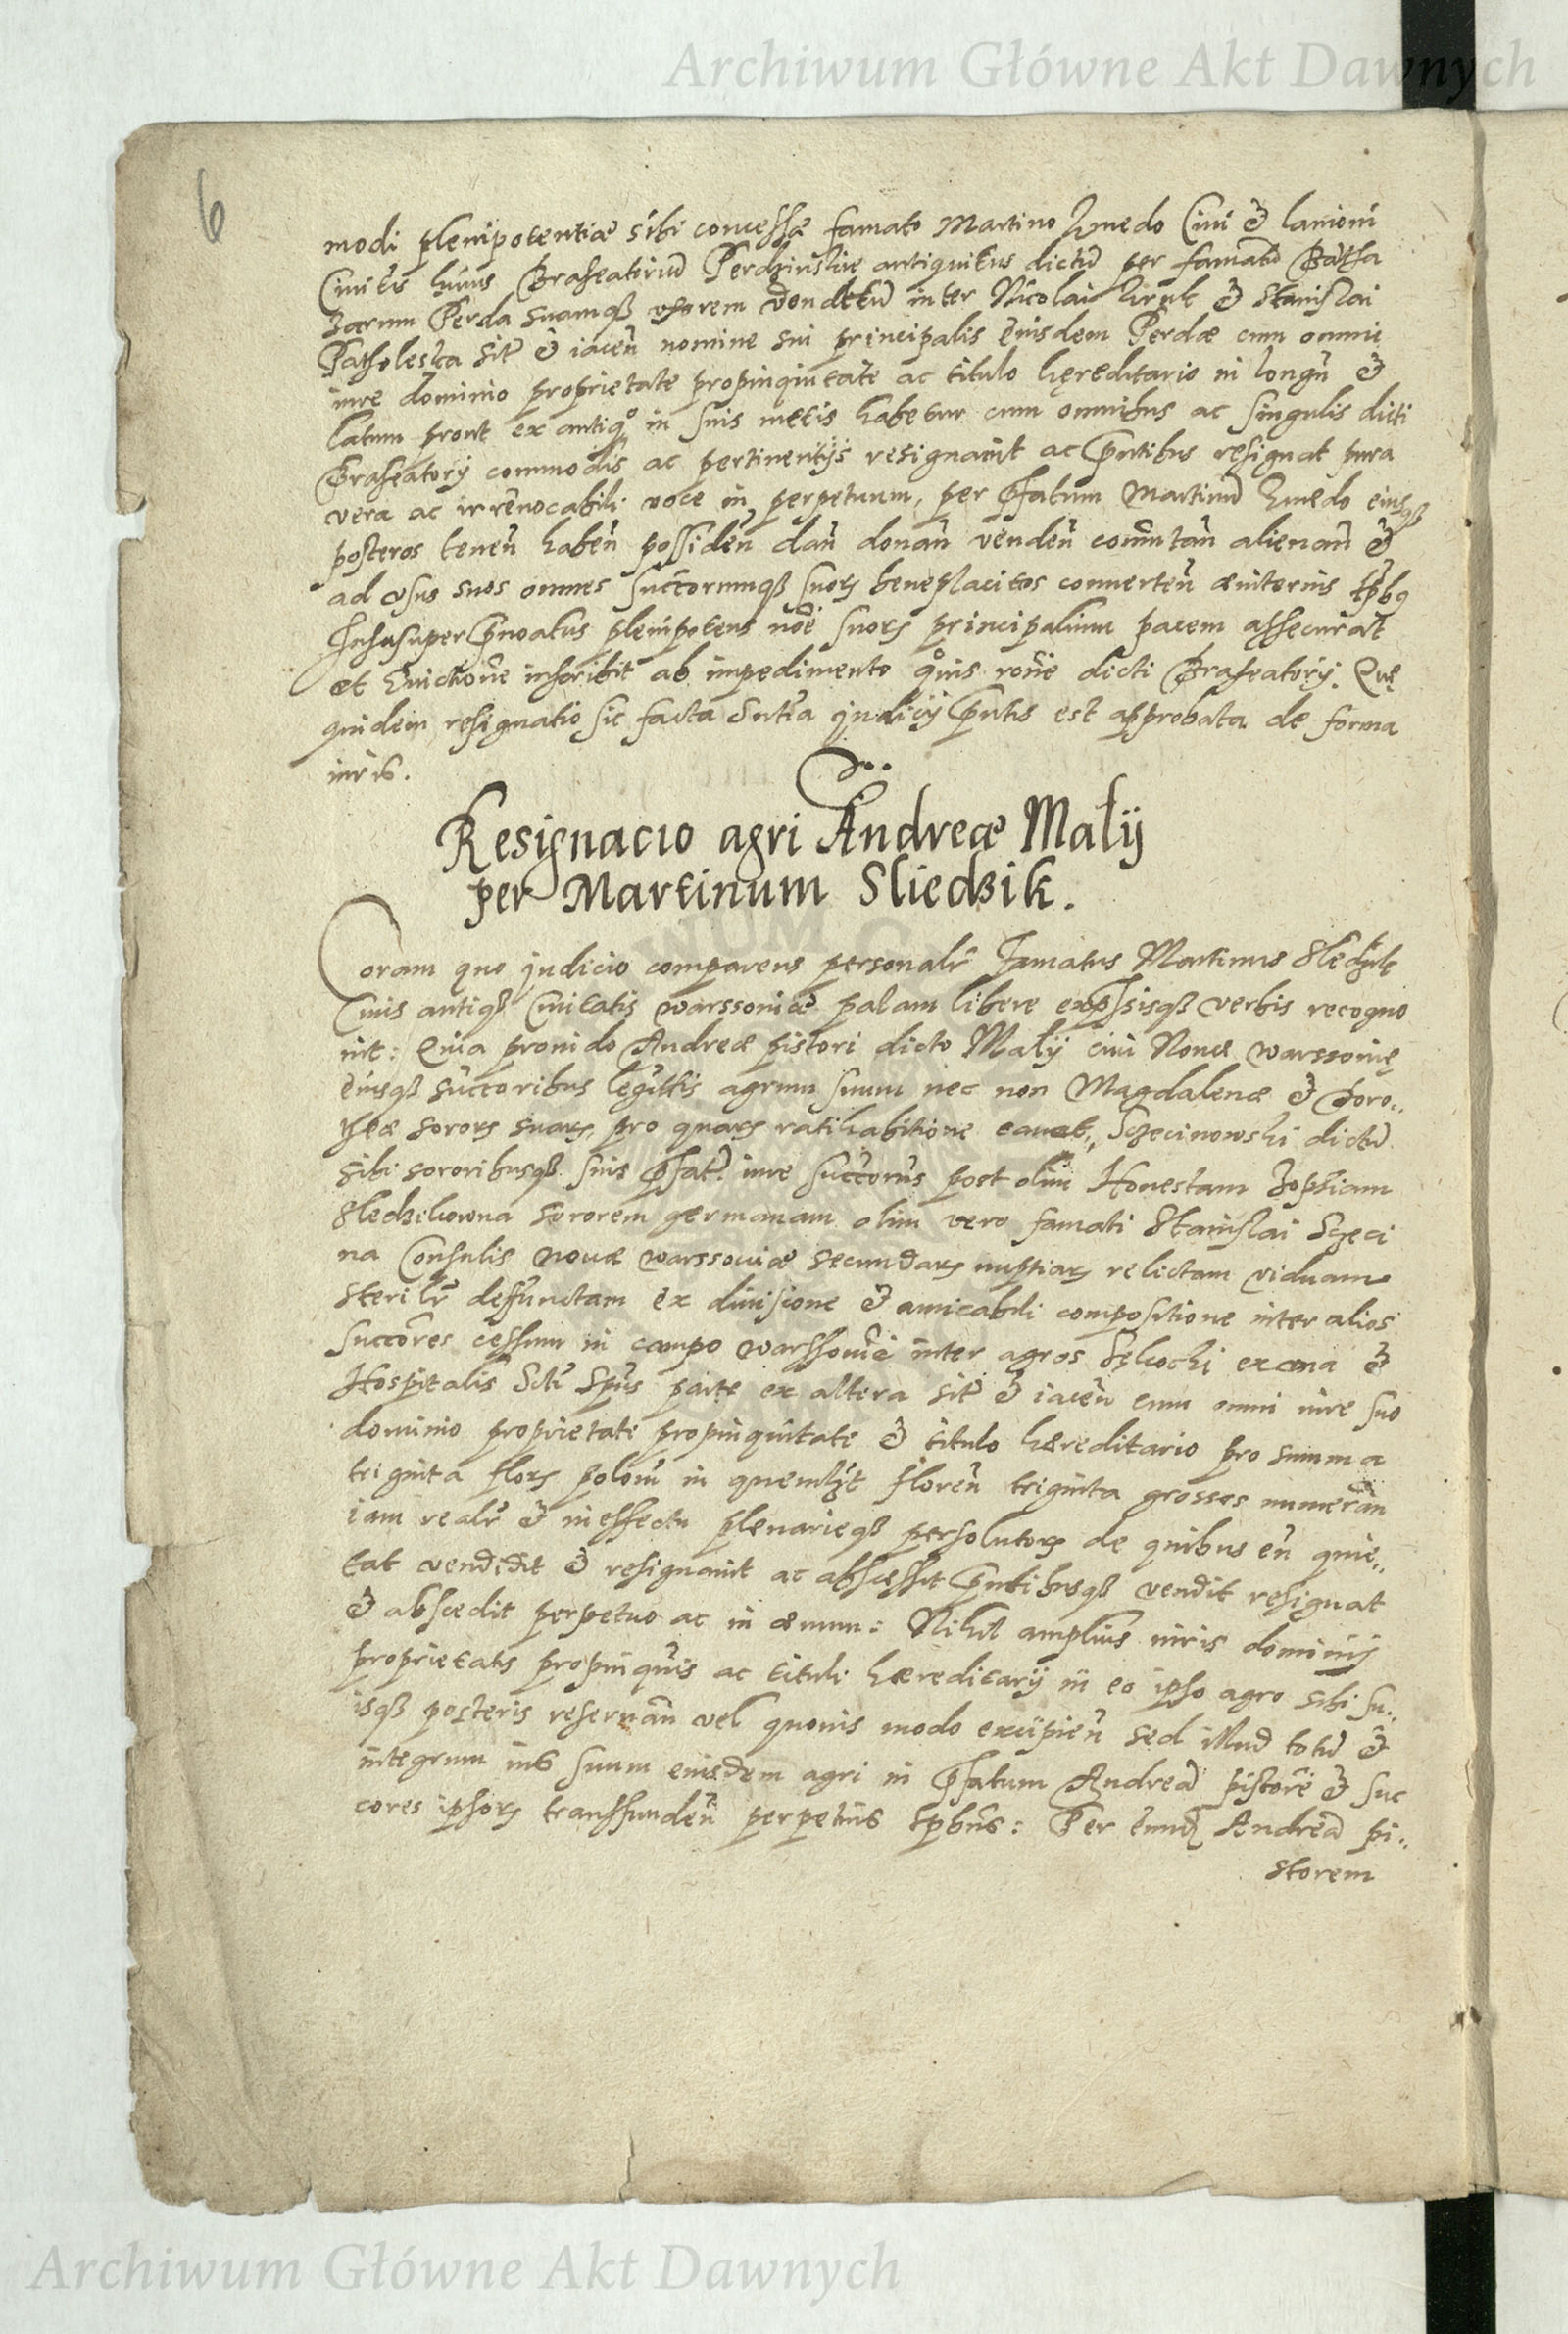 Archiwum Główne Akt Dawnych
6
modi plenipotentiæ sibi concessæ famato Martino Kmedo Ciui & lanioni
Ciuitīs huius Braseatoriū Perdzinskie antiquitus dictū per famatū Baltha
zarum Perda suamqꝫ vxorem venditū inter Nicolai & Stanislai
sitū & iaceñ nomine sui principalis eiusdem Perdæ cum omni
iure dominio proprietate propinquitate ac titulo hęreditario in longū &
latum prout ex antiqº in suis metis habetur cum omnibus ac singulis dicti
Braseatorij commodis ac pertinentijs resignauit ac pñtibus resignat pura
vera ac irreuocabili voce in perpetuum, per p̄fatum Martinū Kmedo eiusqꝫ
posteros teneñ habeñ possideñ dañ donañ vendeñ com̄utañ alienañ &
ad vsus suos omnes succorumqꝫ suorꝝ beneplacitos conuerteñ æuiternis tp̄bꝫ
Insuper plenipotens noīe suorꝝ principalium pacem assecurat
et Euictionē inscribit ab impedimento qºuis rōne dicti Braseatorij. Quę
quidem resignatio sic facta Sntīa Judicij pñtis est approbata de forma
iuris.
Resignacio agri Andreæ Małÿ
per Martinum Sliedzik.
Coram quo judicio comparens personalr̄ Famatus Martinus Sledzik
Ciuis antiqꝫ Ciuitatis warssouiæ palam libere exp̄ssisqꝫ verbis recogno
uit: Quia prouido Andreæ pistori dicto Małÿ ciui Nouæ warssouię
eiusqꝫ succoribus legittīs agrum suum nec non Magdalenæ & Doro„
theæ sororꝝ suarꝝ, pro quarꝝ ratihabitione cauet„ Szecinowski dictū
sibi sororibusqꝫ suis p̄fatis iure succonis post olim Honestam Zophiam
Sledzikowna sororem germanam olim vero famati Stanislai Szeci
na Consulis nouæ warssouiæ secundarꝝ nuptiarꝝ relictam viduam
sterilr̄ deffunctam ex diuisione & amicabili compositione inter alios
succores cessum in campo warssouiē inter agros ex una &
Hospitalis Scti Spūs parte ex altera sitū & iaceñ cum omni iure suo
dominio proprietate propinquitate & titulo hæreditario pro summa
triginta florꝝ poloñ in quemlꝫt floreñ triginta grossos numerañ
iam realr̄ & in effectu plenarieqꝫ persolutorꝝ de quibus eū quie„
tat vendidit & resignauit ac abscessit pñtibusqꝫ vendit resignat
& abscedit perpetuo ac in æuum: Nihil amplius iuris dominij
proprietatis propinquis ac tituli hæreditarij in eo ipso agro sibi su„
isqꝫ posteris reseruañ vel quouis modo excipieñ sed illud totū &
integrum ius suum eiusdem agri in p̄fatum Andreā pistorē & suc
cores ipsorꝝ transfundeñ perpetuis tp̄bus: Per eundē Andreā pi„
storem
Archiwum Główne Akt Dawnych